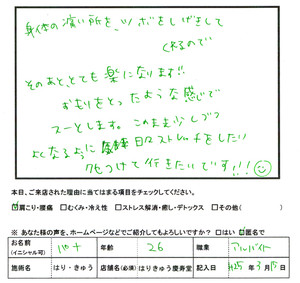 身体の凝い所を、ツボをしげきして
くれるので
そのあと、とても楽になります!!
おもりをとったような感じで
スーとします。このまま少しづつ
よくなるように 日々ストレッチをしたい
行きたいです!!!
本日、ご来店された理由に当てはまる項目をチェックしてください。
☑肩こり・腰痛 □むくみ・冷え性 □ストレス解消・癒し・デトックス □その他( )
※ あなた様の声を、ホームページなどでご紹介してもよろしいですか? □はい ☑匿名で
お名前 (イニシャル可) 年齢 26 職業 アルバイト
施術名 はり・きゅう 店舗名(必須) はりきゅう慶寿堂 記入日 H25年 3月 15日